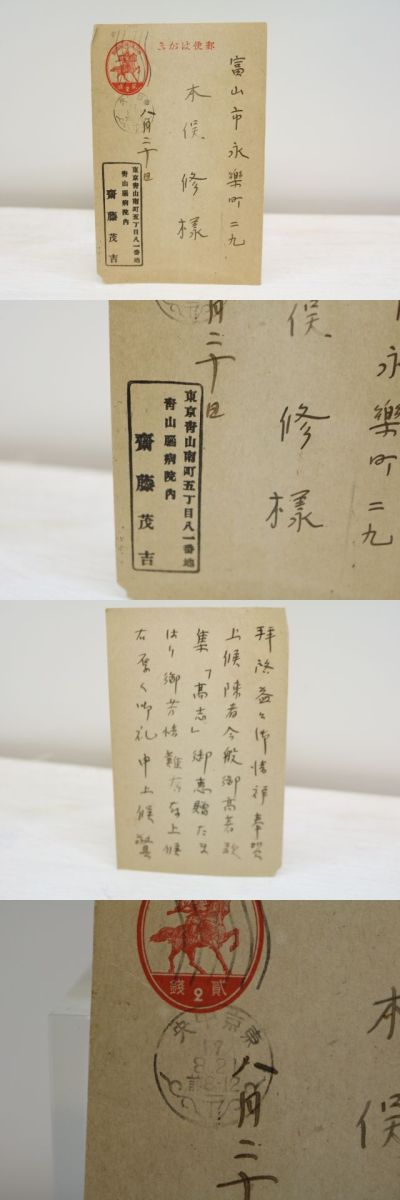 郵便はがき
富山市永樂町二九
木俣修様
八月二十日
東京青山南町五丁目八一番地
青山腦病院内
齋藤茂吉
月二十日
俣修様
永樂町二九
東京青山南町五丁目八一番地
青山腦病院内
齋藤茂吉
拝啓益々御清祥奉賀
上候陳者今般御高著歌
集「高志」御惠贈たま
はり御芳情難有存上候
右厚く御礼申上候 敬具
貳2錢
東京中央
17
8.21
前8-12
八月二十
木俣